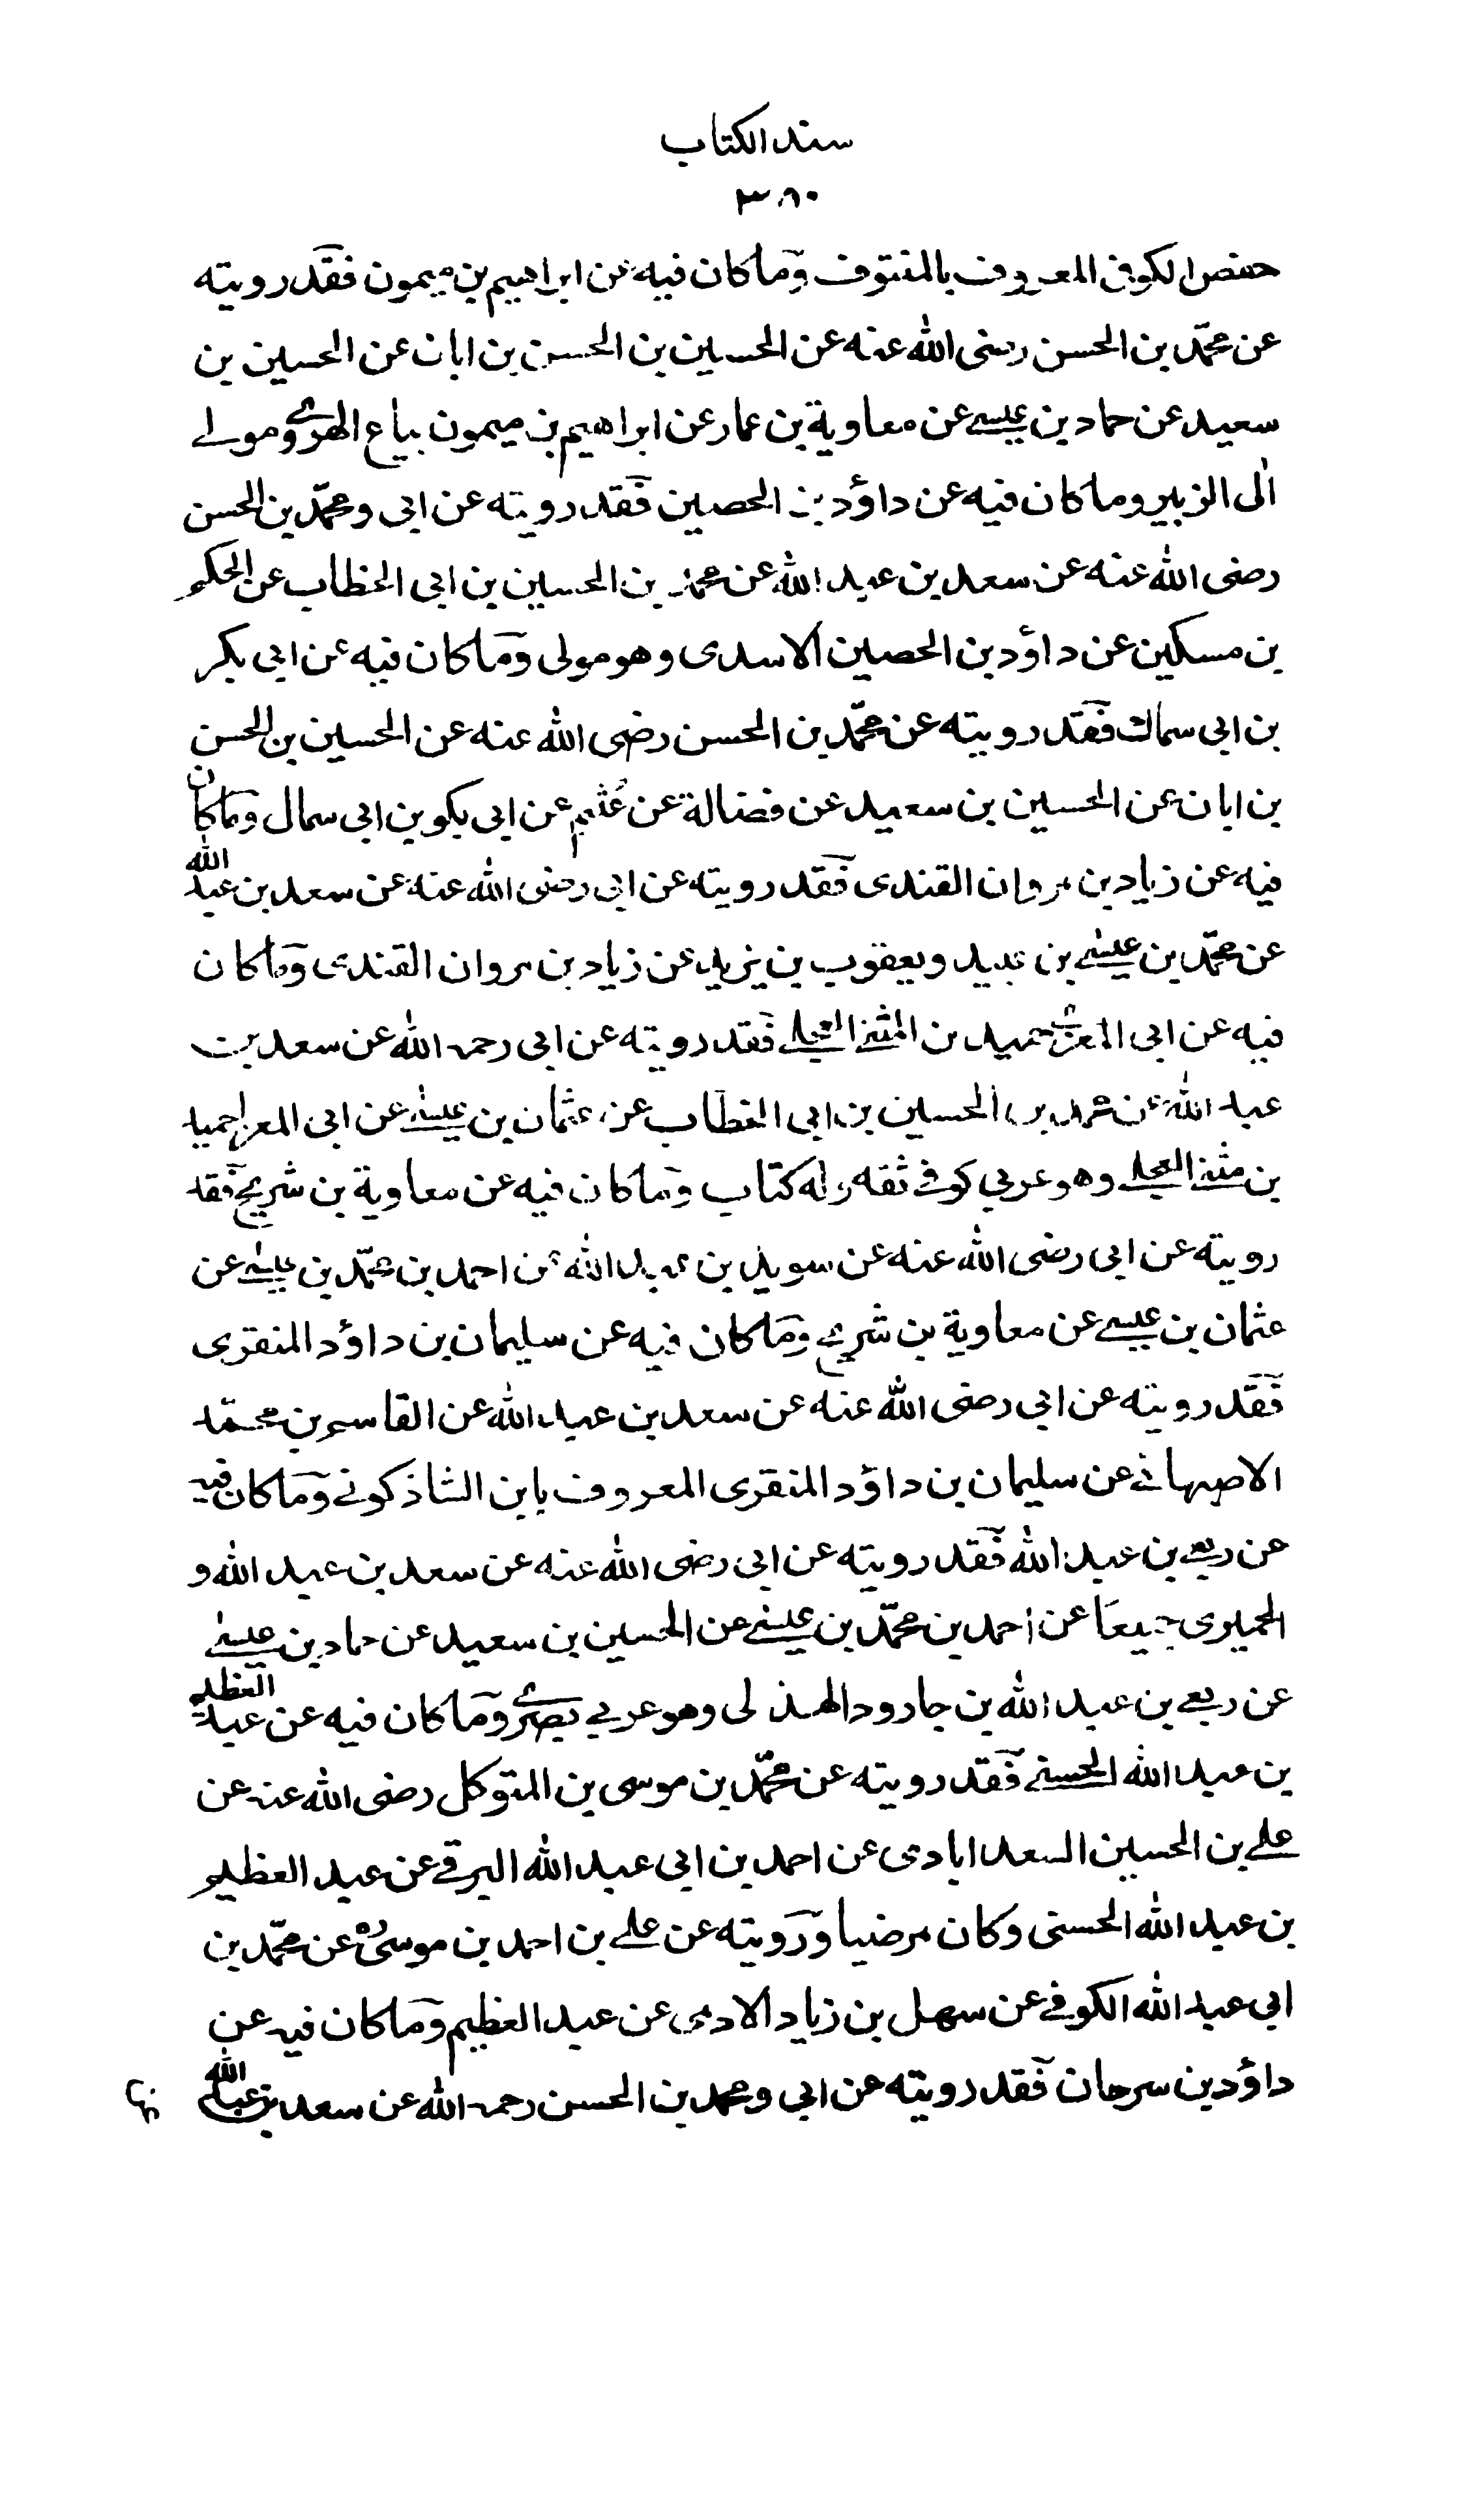 سند الكتاب
٣٨٠
حفص الكوفى المعروف بالمنتوف وما كان فيه عن ابراهيم بن ميمون فقد رويته
عن محمّد بن الحسن رضى الله عنه عن الحسين بن الحسن بن ابان عن الحسين بن
سعيد عن حماد بن عيسے عن معاوية بن عمار عن ابراهيم بن ميمون بياع الهروے ومولے
اٰلى الزبير وما كان فيه عن داؤد بن الحصين فقد رويته عن ابى ومحمّد بن الحسن
رضى الله عنه عن سعد بن عبد الله عن محمد بن الحسين بن ابى الخطاب عن الحكم
بن مسكين عن داؤد بن الحصين الاسدى وهو مولى وما كان فيه عن ابى بكر
بن ابى سماك فقد رويته عن محمّد بن الحسن رضى الله عنه عن الحسين بن الحسن
بن ابان عن الحسين بن سعيد عن فضالة عن عُثيم عن ابى بكر بن ابى سمال وما كان
فيه عن زياد بن مروان القندى فقد رويته عن ابى رضى الله عنه عن سعد بن عبد الله
عن محمّد بن عيسےٰ بن عبيد ويعقوب بن يزيد عن زياد بن مروان القندى وما كان
فيه عن ابى المعزا حميد بن المثنے العجلے فقد رويته عن ابى رحمه الله عن سعد بن
عبد الله عن محمد بن الحسين بن ابى الخطاب عن عثمان بن عيسےٰ عن ابى المعزا حميد
بن مثنے العجلے وهو عربي كوفے ثقه وله كتاب وما كان فيه عن معاوية بن شريح فقد
رويته عن ابى رضى الله عنه عن سويد بن عبد الله عن احمد بن محمّد بن عيسےٰ عن
عثمان بن عيسے عن معاوية بن شريح وما كان فيه عن سليمان بن داؤد المنقرى
فقد رويته عن ابى رضى الله عنه عن سعد بن عبد الله عن القاسم بن محمّد
الاصبهانے عن سليمان بن داؤد المنقرى المعروف بابن الشاذكونے وما كان فيه
عن ربعے بن عبد الله فقد رويته عن ابى رضى الله عنه عن سعد بن عبد الله و
الحميرى جميعًا عن احمد بن محمّد بن عيسےٰ عن الحسين بن سعيد عن حماد بن عيسےٰ
عن ربعے بن عبد الله بن جارود الهذلى وهو عربي بصرے وما كان فيه عن عبد العظيم
بن عبد الله الحسنے فقد رويته عن محمّد بن موسى بن المتوكل رضى الله عنه عن
علے بن الحسين السعدابادى عن احمد بن ابى عبد الله البرقے عن عبد العظيم
بن عبد الله الحسنى وكان مرضيا ورويته عن علے بن احمد بن موسىٰ عن محمّد بن
ابى عبد الله الكوفے عن سهل بن زياد الادمى عن عبد العظيم وما كان فيه عن
داؤد بن سرحان فقد رويته عن ابى ومحمد بن الحسن رحمه الله عن سعد بن عبد الله